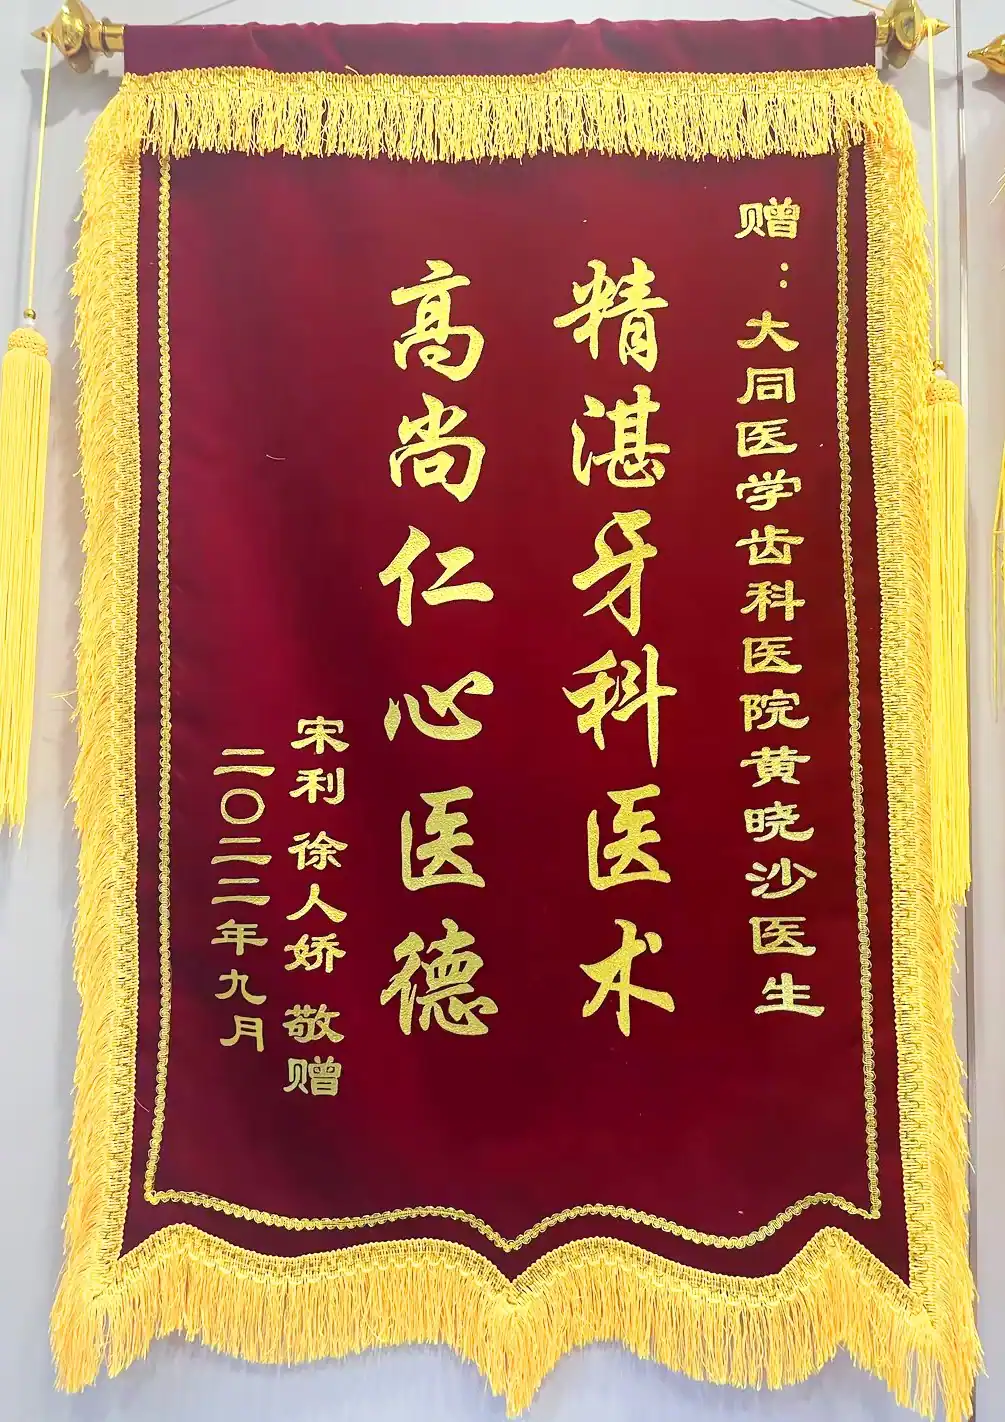 赠：大同医学齿科医院黄晓沙医生
精湛牙科医术
高尚仁心医德
宋利 徐人娇 敬赠
二〇二二年九月